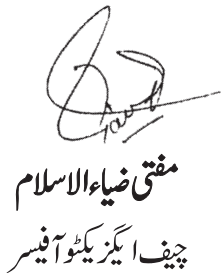 مفتی ضیاء الاسلام
چیف ایگزیکٹو آفیسر